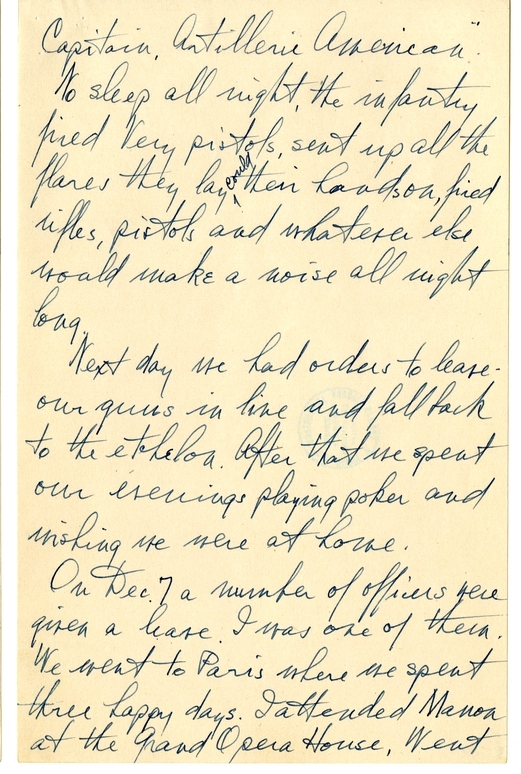 Capitain, Artillerie American".
No sleep all night, the infantry
fired Very pistols, sent up all the
flares they lay could their hands on, fired
rifles, pistols and whatever else
would make a noise all night
long.
Next day we had orders to leave
our guns in line and fall back
to the etchelon. After that we spent
our evenings playing poker and
wishing we were at home.
On Dec. 7 a number of officers were
given a leave. I was one of them.
We went to Paris where we spent
three happy days. I attended Manon
at the Grand Opera House, Went